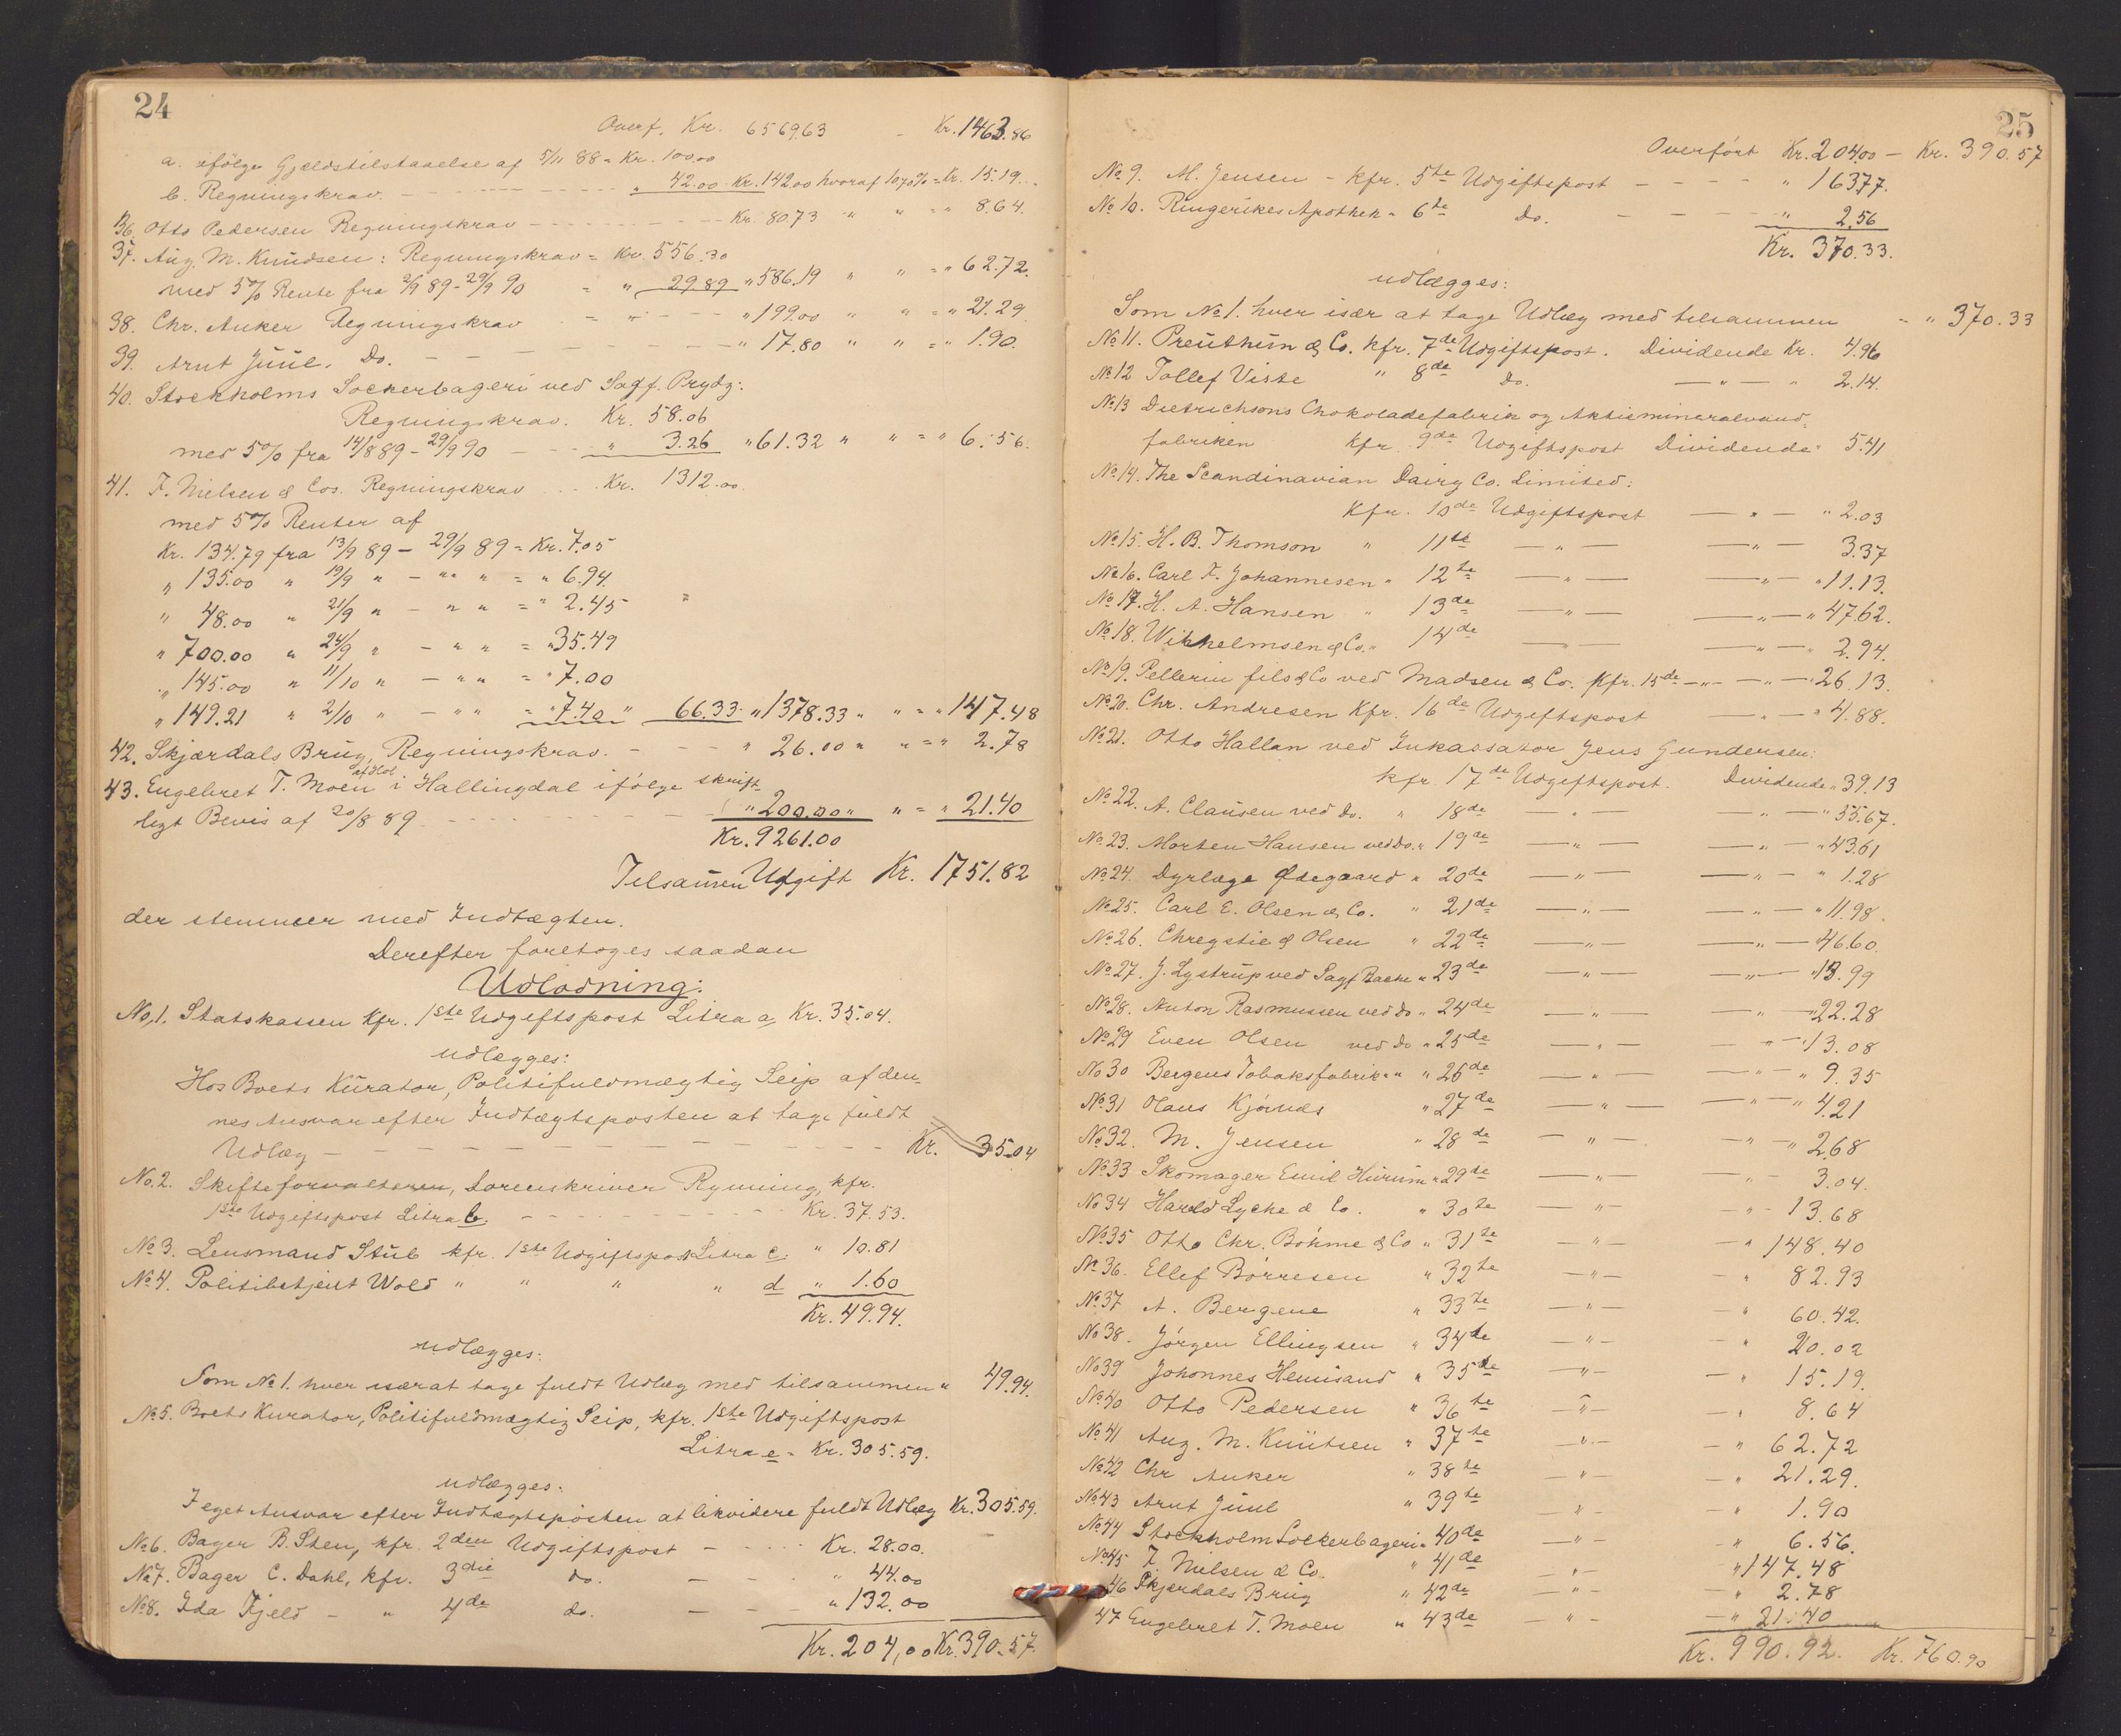 24
Overf. Kr. 6569.63 - Kr. 1463.86
a. ifölge Gjeldstilstaaelse af 5/11 88 = Kr. 100.00
b. Regningskrav. - - - " 42.00 Kr. 142.00 hvoraf 10,70% = Kr. 15.19.
36. Otto Pedersen Regningskrav - - - Kr. 80.73 " " = " 8.64.
37. Aug. M. Knudsen: Regningskrav = Kr. 556.30
med 5% Rente fra 2/9 89 - 29/9 90 = " 29.89 " 586.19 " " = " 62.72.
38. Chr. Anker Regningskrav = " - - - " 199.00 " " = " 21.29
39. Arnt Juul. Do. - - - " 17.80 " " = " 1.90.
40. Stockholms Sockerbageri ved Sagf. Prydz:
Regningskrav. Kr. 58.06
med 5% fra 14/8 89 - 29/9 90 - - " 3.26 " 61.32 " " = " 6.56.
41. F. Nielsen & Cos. Regningskrav - - Kr. 1312.00
med 5% Renter af
Kr. 134.79 fra 13/9 89 - 29/9 89 = Kr. 7.05
" 135.00 " 19/9 " - " " " = " 6.94.
" 48.00 " 21/9 " - " " = " 2.45 "
" 700.00 " 24/9 " - " " = " 35.49
" 145.00 " 11/10 " - " " = " 7.00
" 149.21 " 2/10 " - " " = " 7.40 " 66.33. " 1378.33 " " = " 147.48
42. Skjærdals Brug, Regningskrav. - - - " 26.00 " " = " 2.78
43. Engebret T. Moen af Hol i Hallingdal ifölge skrift-
ligt Bevis af 20/8 89 - - - " 200.00 " " = " 21.40
Kr. 9261.00
Tilsamen Udgift Kr. 1751.82
der stemmer med Indtægten.
Derefter foretoges saadan
Udlodning:
No. 1. Statskassen Kfr. 1ste Udgiftspost Litra a, Kr. 35.04.
udlægges:
Hos Boets Kurator, Politifuldmægtig Seip af den-
nes Ansvar efter Indtægtsposten at tage fuldt
Udlæg - - - Kr. 35.04
No. 2. Skifteforvalteren, Sorenskriver Rynning, kfr.
1ste Udgiftspost Litra b. - - - Kr. 37.53.
No 3. Lensmand Stub kfr. 1ste Udgiftspost Litra c. " 10.81
No 4. Politibetjent Wold " " " " d " 1.60
Kr. 49.94.
udlægges:
Som No 1. hver især at tage fuldt Udlæg med tilsammen " 49.94.
No 5. Boets Kurator, Politifuldmægtig Seip, kfr. 1ste Udgiftspost
Litra e = Kr. 305.59.
udlægges:
I eget Ansvar efter Indtægtsposten at likvidere fuldt Udlæg Kr. 305.59.
No 6. Bager B. Sten, kfr. 2den Udgiftspost - - - Kr. 28.00.
No 7. Bager C. Dahl, kfr. 3die do. - - " 44.00
No 8. Ida Fjeld - " 4de do. - - - " 132.00
Kr. 204,00 Kr. 390.57.
25
Overfört Kr. 204.00 - Kr. 390.57
No 9. M. Jensen - Kfr. 5te Udgiftspost - - - " 163.77.
No 10. Ringerikes Apothek " 6te do. - - - " 2.56
Kr. 370.33.
udlægges:
Som No 1. hver især at tage Udlæg med tilsammen - " 370.33
No 11. Preuthun & Co. kfr. 7de Udgiftspost. Dividende Kr. 4.96
No 12 Tollef Viste " 8de do. — " — " 2.14.
No 13 Dietrichsons Chokoladefabrik og Aktiemineralvand-
fabriken kfr. 9de Udgiftspost Dividende " 5.41
No 14. The Scandinavian Dairy Co. Limited:
Kfr. 10de Udgiftspost — " — " 2.03
No 15. H. B. Thomson " 11te — " — — " — 3.37
No 16. Carl F. Johannesen " 12te — " — — " — " 11.13.
No 17. H. A. Hansen " 13de — " — — " — " 47.62.
No 18. Wilhelmsen & Co. " 14de — " — — " — " 2.94.
No 19. Pellerin fils & Co ved Madsen & Co. Kfr. 15de — " — — " — " 26.13.
No 20. Chr. Andresen Kfr. 16de Udgiftspost — " — " 4.88.
No 21. Otto Hallan ved Inkassator Jens Gundersen:
kfr. 17de Udgiftspost. Dividende " 39.13
No 22. A. Clausen ved do. " 18de — " — — " — " 35.67.
No 23. Morten Hansen ved do. " 19de — " — — " — " 43.61
No 24. Dyrlæge Ødegaard " 20de — " — — " — " 1.28
No 25. Carl E. Olsen & Co. " 21de — " — — " — " 11.98.
No 26. Chrystie & Olsen " 22de — " — — " — " 46.60.
No 27. J. Lystrup ved Sagf Backe " 23de — " — — " — " 13.99
No 28. Anton Rasmussen ved do " 24de — " — — " — " 22.28
No 29 Even Olsen ved do " 25de — " — — " — " 13.08
No 30 Bergens Tobaksfabrik " " 26de — " — — " — " 9.35
No 31 Olaus Kjørnæs " 27de — " — — " — " 4.21
No 32. M. Jensen " 28de — " — — " — " 2.68
No 33 Skomager Emil Hurum " 29de — " — — " — 3.04.
No 34 Harald Lycke & Co. " 30te — " — — " — 13.68
No 35 Otto Chr. Böhme & Co " 31te — " — — " 148.40
No 36. Ellef Börresen " 32te — " — — " 82.93
No 37 A. Bergene " 33te — " — — " 60.42.
No 38. Jörgen Ellingsen " 34te — " — — " 20.02
No 39 Johannes Hemisand " 35te — " — — " 15.19.
No 40 Otto Pedersen " 36te — " — — " 8.64
No 41 Aug. M. Knutsen " 37te — " — — " 62.72
No 42 Chr Anker " 38te — " — — " 21.29.
No 43 Arnt Juul " 39te — " — — " 1.90
No 44 Stockholm Sockerbageri " 40de — " — — " 6.56.
No 45 F. Nielsen & Co. " 41de — " — — " 147.48
46 Skjærdals Brug " 42de — " — — " 2.78
47 Engebret T. Moen " 43de — " — — " 21.40
Kr. 990.92. Kr. 760.90